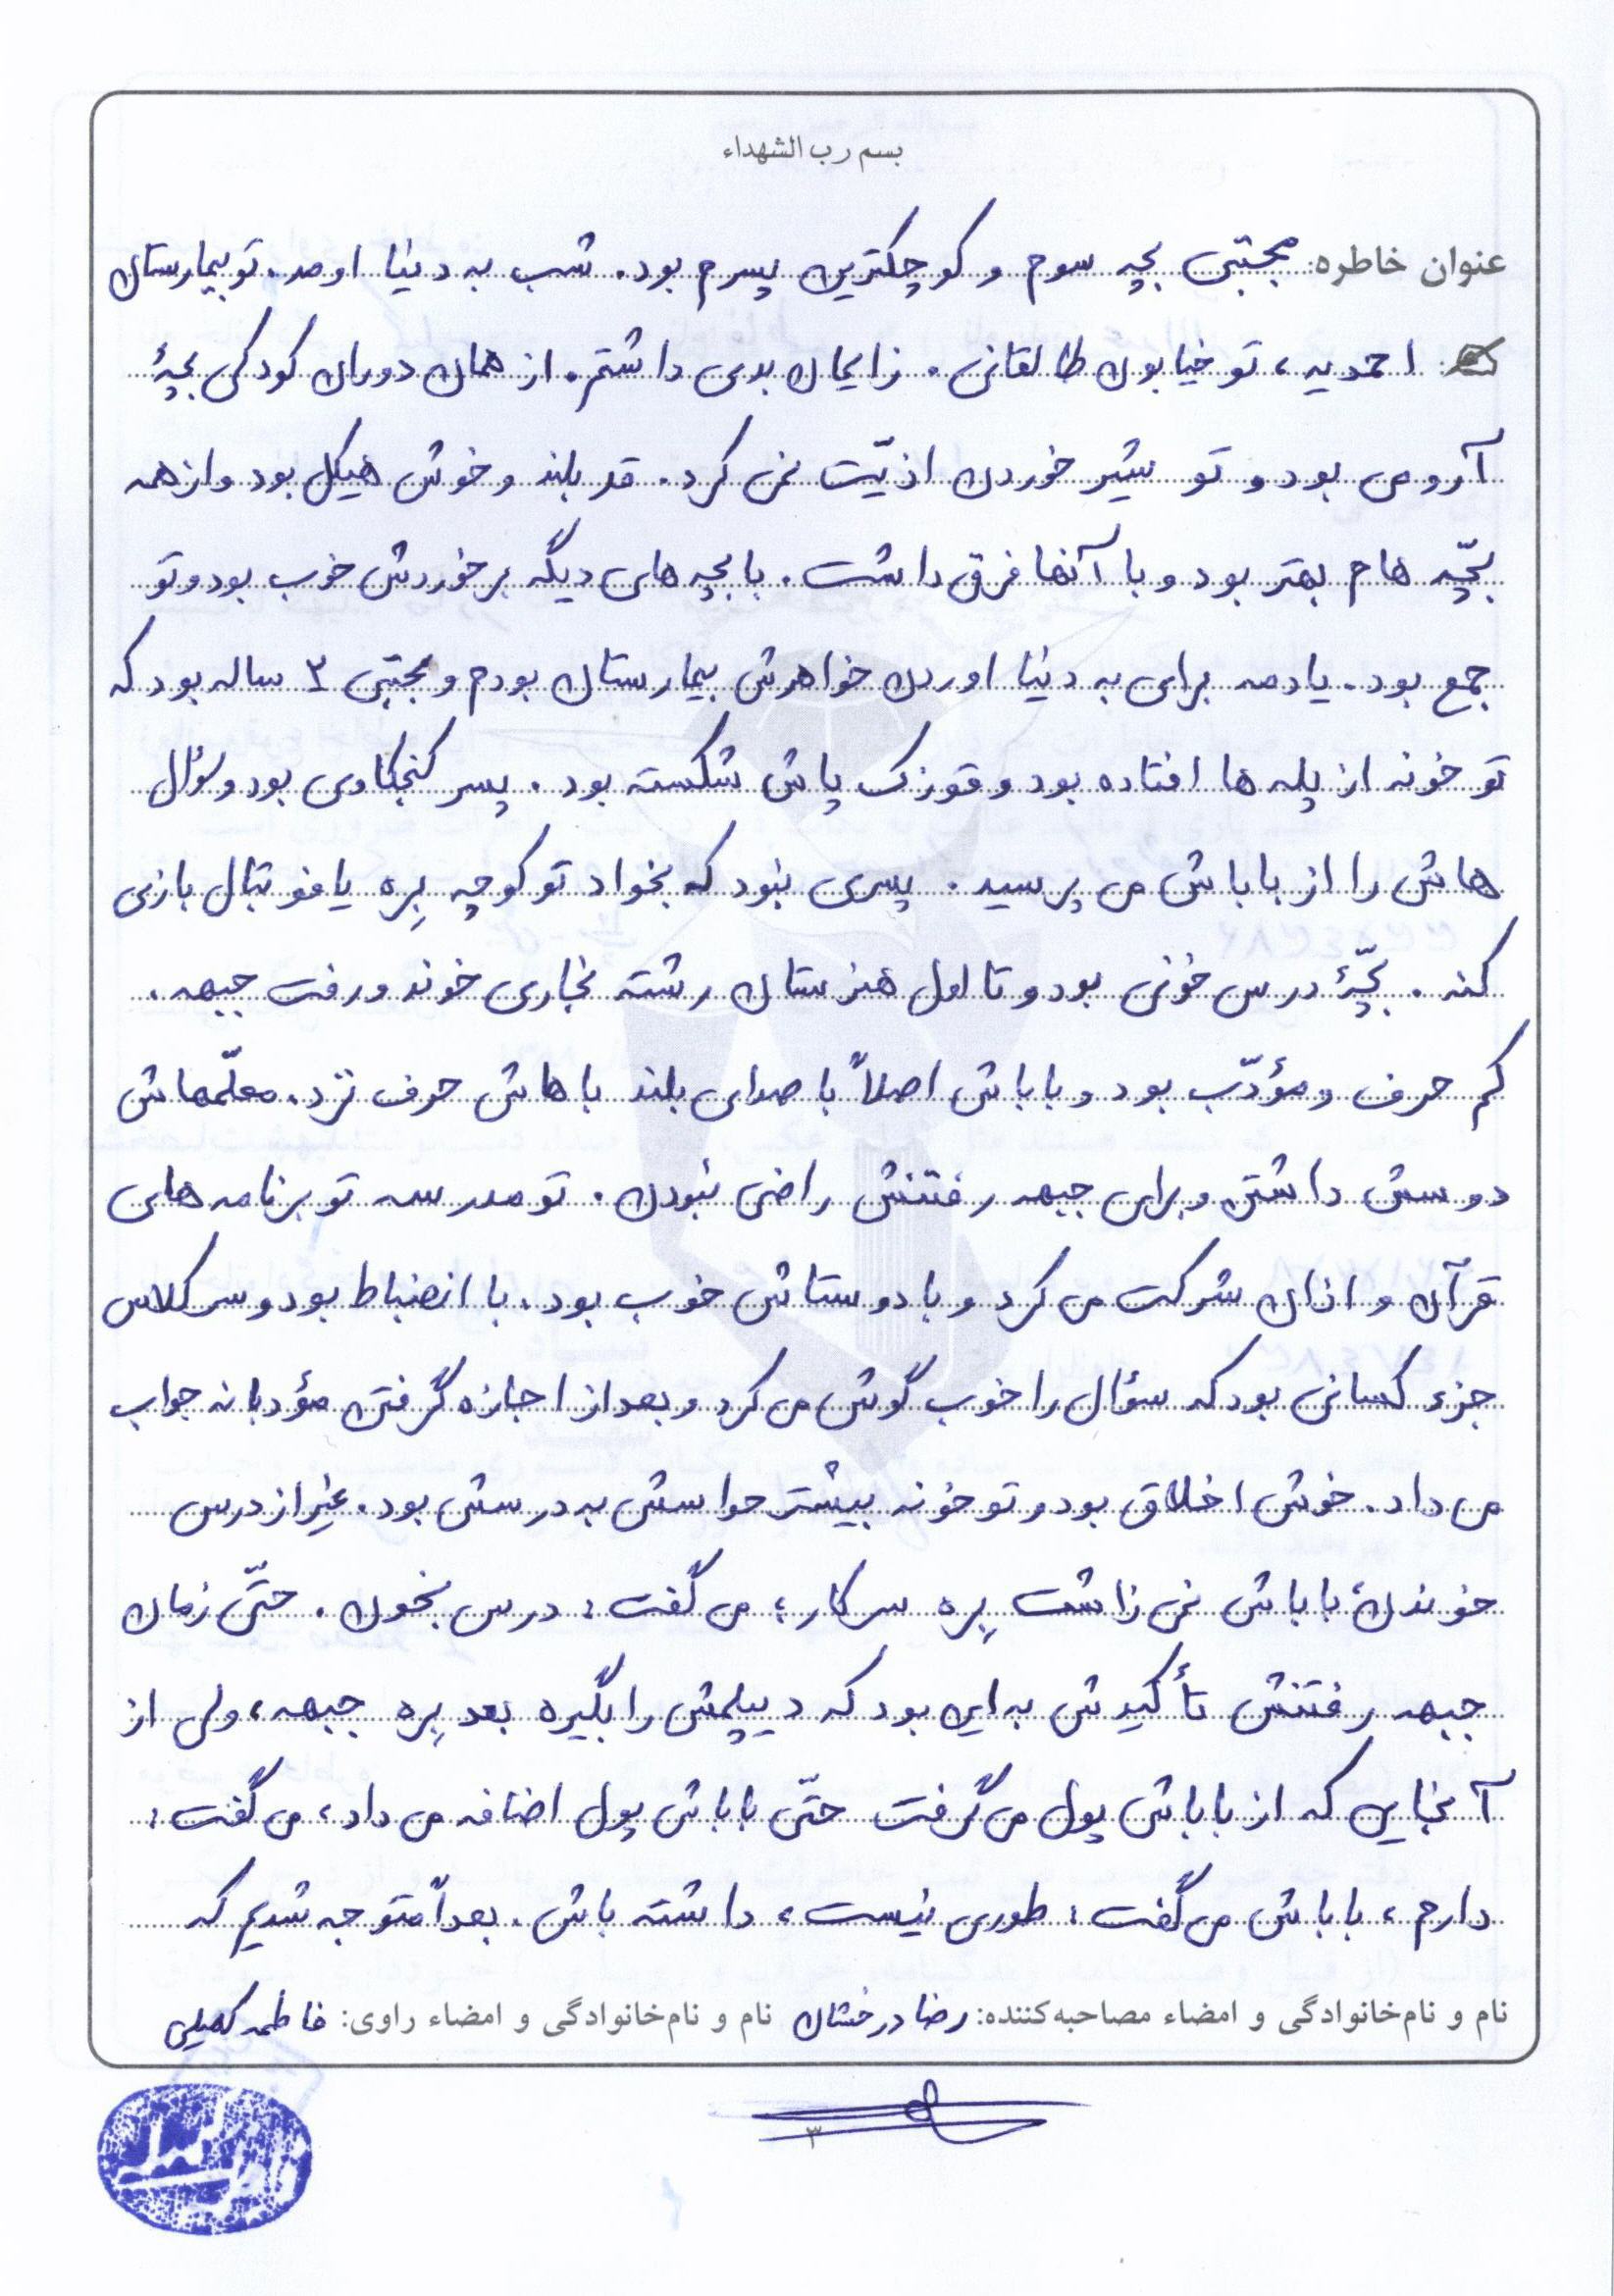 بسم رب الشهداء
عنوان خاطره: مجتبی بچه سوم و کوچکترین پسرم بود. شب به دنیا اومد. تو بیمارستان
احمدیه، تو خیابون طالقانی. زایمان بدی داشتم. از همان دوران کودکی بچهٔ
آرومی بود و تو شیر خوردن اذیّت نمی کرد. قد بلند و خوش هیکل بود و از همه
بچّه هام بهتر بود و با آنها فرق داشت. با بچه های دیگه برخوردش خوب بود و تو
جمع بود. یادمه برای به دنیا اوردن خواهرش بیمارستان بودم و مجتبی ۳ ساله بود که
تو خونه از پله ها افتاده بود و قوزک پاش شکسته بود. پسر کنجکاوی بود و سؤال
هاش را از باباش می پرسید. پسری نبود که بخواد تو کوچه بِره یا فوتبال بازی
کنه. بچّهٔ درس خونی بود و تا اول هنرستان رشته نجاری خوند و رفت جبهه.
کم حرف و مؤدّب بود و باباش اصلاً با صدای بلند باهاش حرف نزد. معلّمهاش
دوسش داشتن و برای جبهه رفتنش راضی نبودن. تو مدرسه تو برنامه های
قرآن و اذان شرکت می کرد و با دوستاش خوب بود. با انضباط بود و سر کلاس
جزء کسانی بود که سؤال را خوب گوش می کرد و بعد از اجازه گرفتن مؤدبانه جواب
می داد. خوش اخلاق بود و تو خونه بیشتر حواسش به درسش بود. غیر از درس
خوندن باباش نمی زاشت بِره سر کار؛ می گفت: درس بخون. حتّی زمان
جبهه رفتنش تأکیدش به این بود که دیپلمش را بگیره بعد بِره جبهه، ولی از
آنجایی که از باباش پول می گرفت حتّی باباش پول اضافه می داد، می گفت:
دارم، باباش می گفت: طوری نیست، داشته باش. بعداً متوجه شدیم که
نام و نام‌خانوادگی و امضاء مصاحبه‌کننده: رضا درخشان نام و نام‌خانوادگی و امضاء راوی: فاطمه
۳